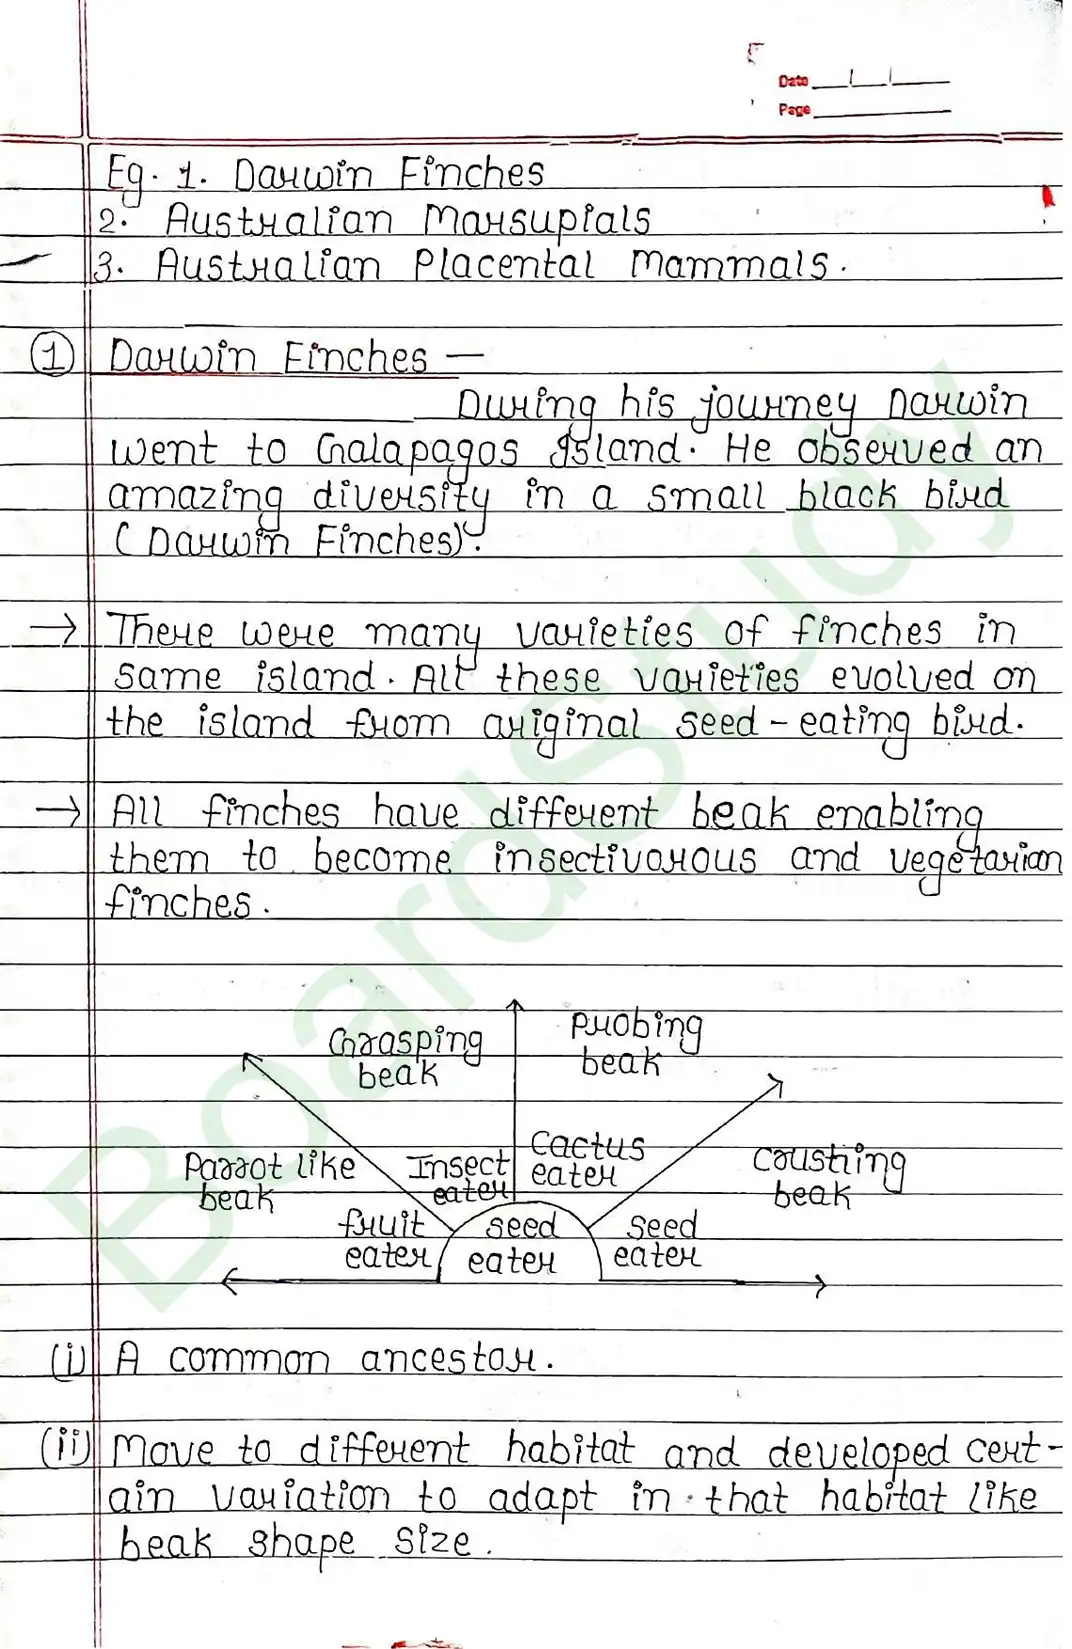 Date
Page
Eg. 1. Darwin Finches
2. Australian Marsupials
3. Australian Placental Mammals.
① Darwin Finches —
During his journey Darwin
went to Galapagos Island. He observed an
amazing diversity in a small black bird
(Darwin Finches).
→ There were many varieties of finches in
same island. All these varieties evolved on
the island from original seed-eating bird.
→ All finches have different beak enabling
them to become insectivorous and vegetarian
finches.
Grasping
beak
Probing
beak
Parrot like
beak
Insect
eater
Cactus
eater
Crushing
beak
fruit
eater
seed
eater
seed
eater
(i) A common ancestor.
(ii) Move to different habitat and developed cert-
ain variation to adapt in that habitat like
beak shape size.
BoardStudy